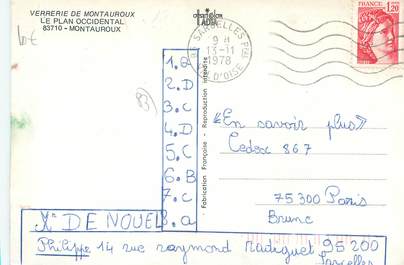 VERRERIE DE MONTAUROUX
LE PLAN OCCIDENTAL
83710 - MONTAUROUX
SARCELLES
9 H
13-11
1978
D'OISE
FRANCE
1,20
Fabrication Française - Reproduction interdite
83)
1. a
2. D
3. C
4. D
5. C
6. B
7. C
8. a
«En savoir plus»
Cedex 867
75300 Paris
Brune
DE NOUEL
Philippe 14 rue raymond Radiguet 95200
Sarcelles